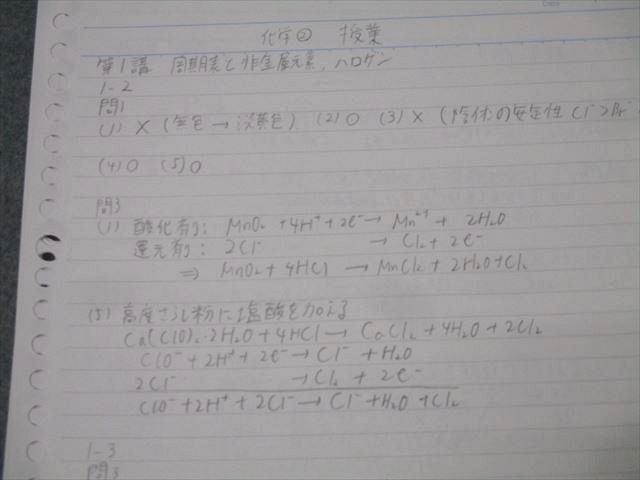 化学② 授業
第1講 周期表と非金属元素, ハロゲン
1-2
問1
(1) × (無色 → 淡黄色) (2) ○ (3) × (陰イオンの安定性 Cl⁻>Br⁻
(4) ○ (5) ○
問3
(1) 酸化剤: MnO₂ + 4H⁺ + 2e⁻ → Mn²⁺ + 2H₂O
還元剤: 2Cl⁻ → Cl₂ + 2e⁻
⇒ MnO₂ + 4HCl → MnCl₂ + 2H₂O + Cl₂
(5) 高度さらし粉に塩酸を加える
Ca(ClO)₂·2H₂O + 4HCl → CaCl₂ + 4H₂O + 2Cl₂
ClO⁻ + 2H⁺ + 2e⁻ → Cl⁻ + H₂O
2Cl⁻ → Cl₂ + 2e⁻
ClO⁻ + 2H⁺ + 2Cl⁻ → Cl⁻ + H₂O + Cl₂
1-3
問3